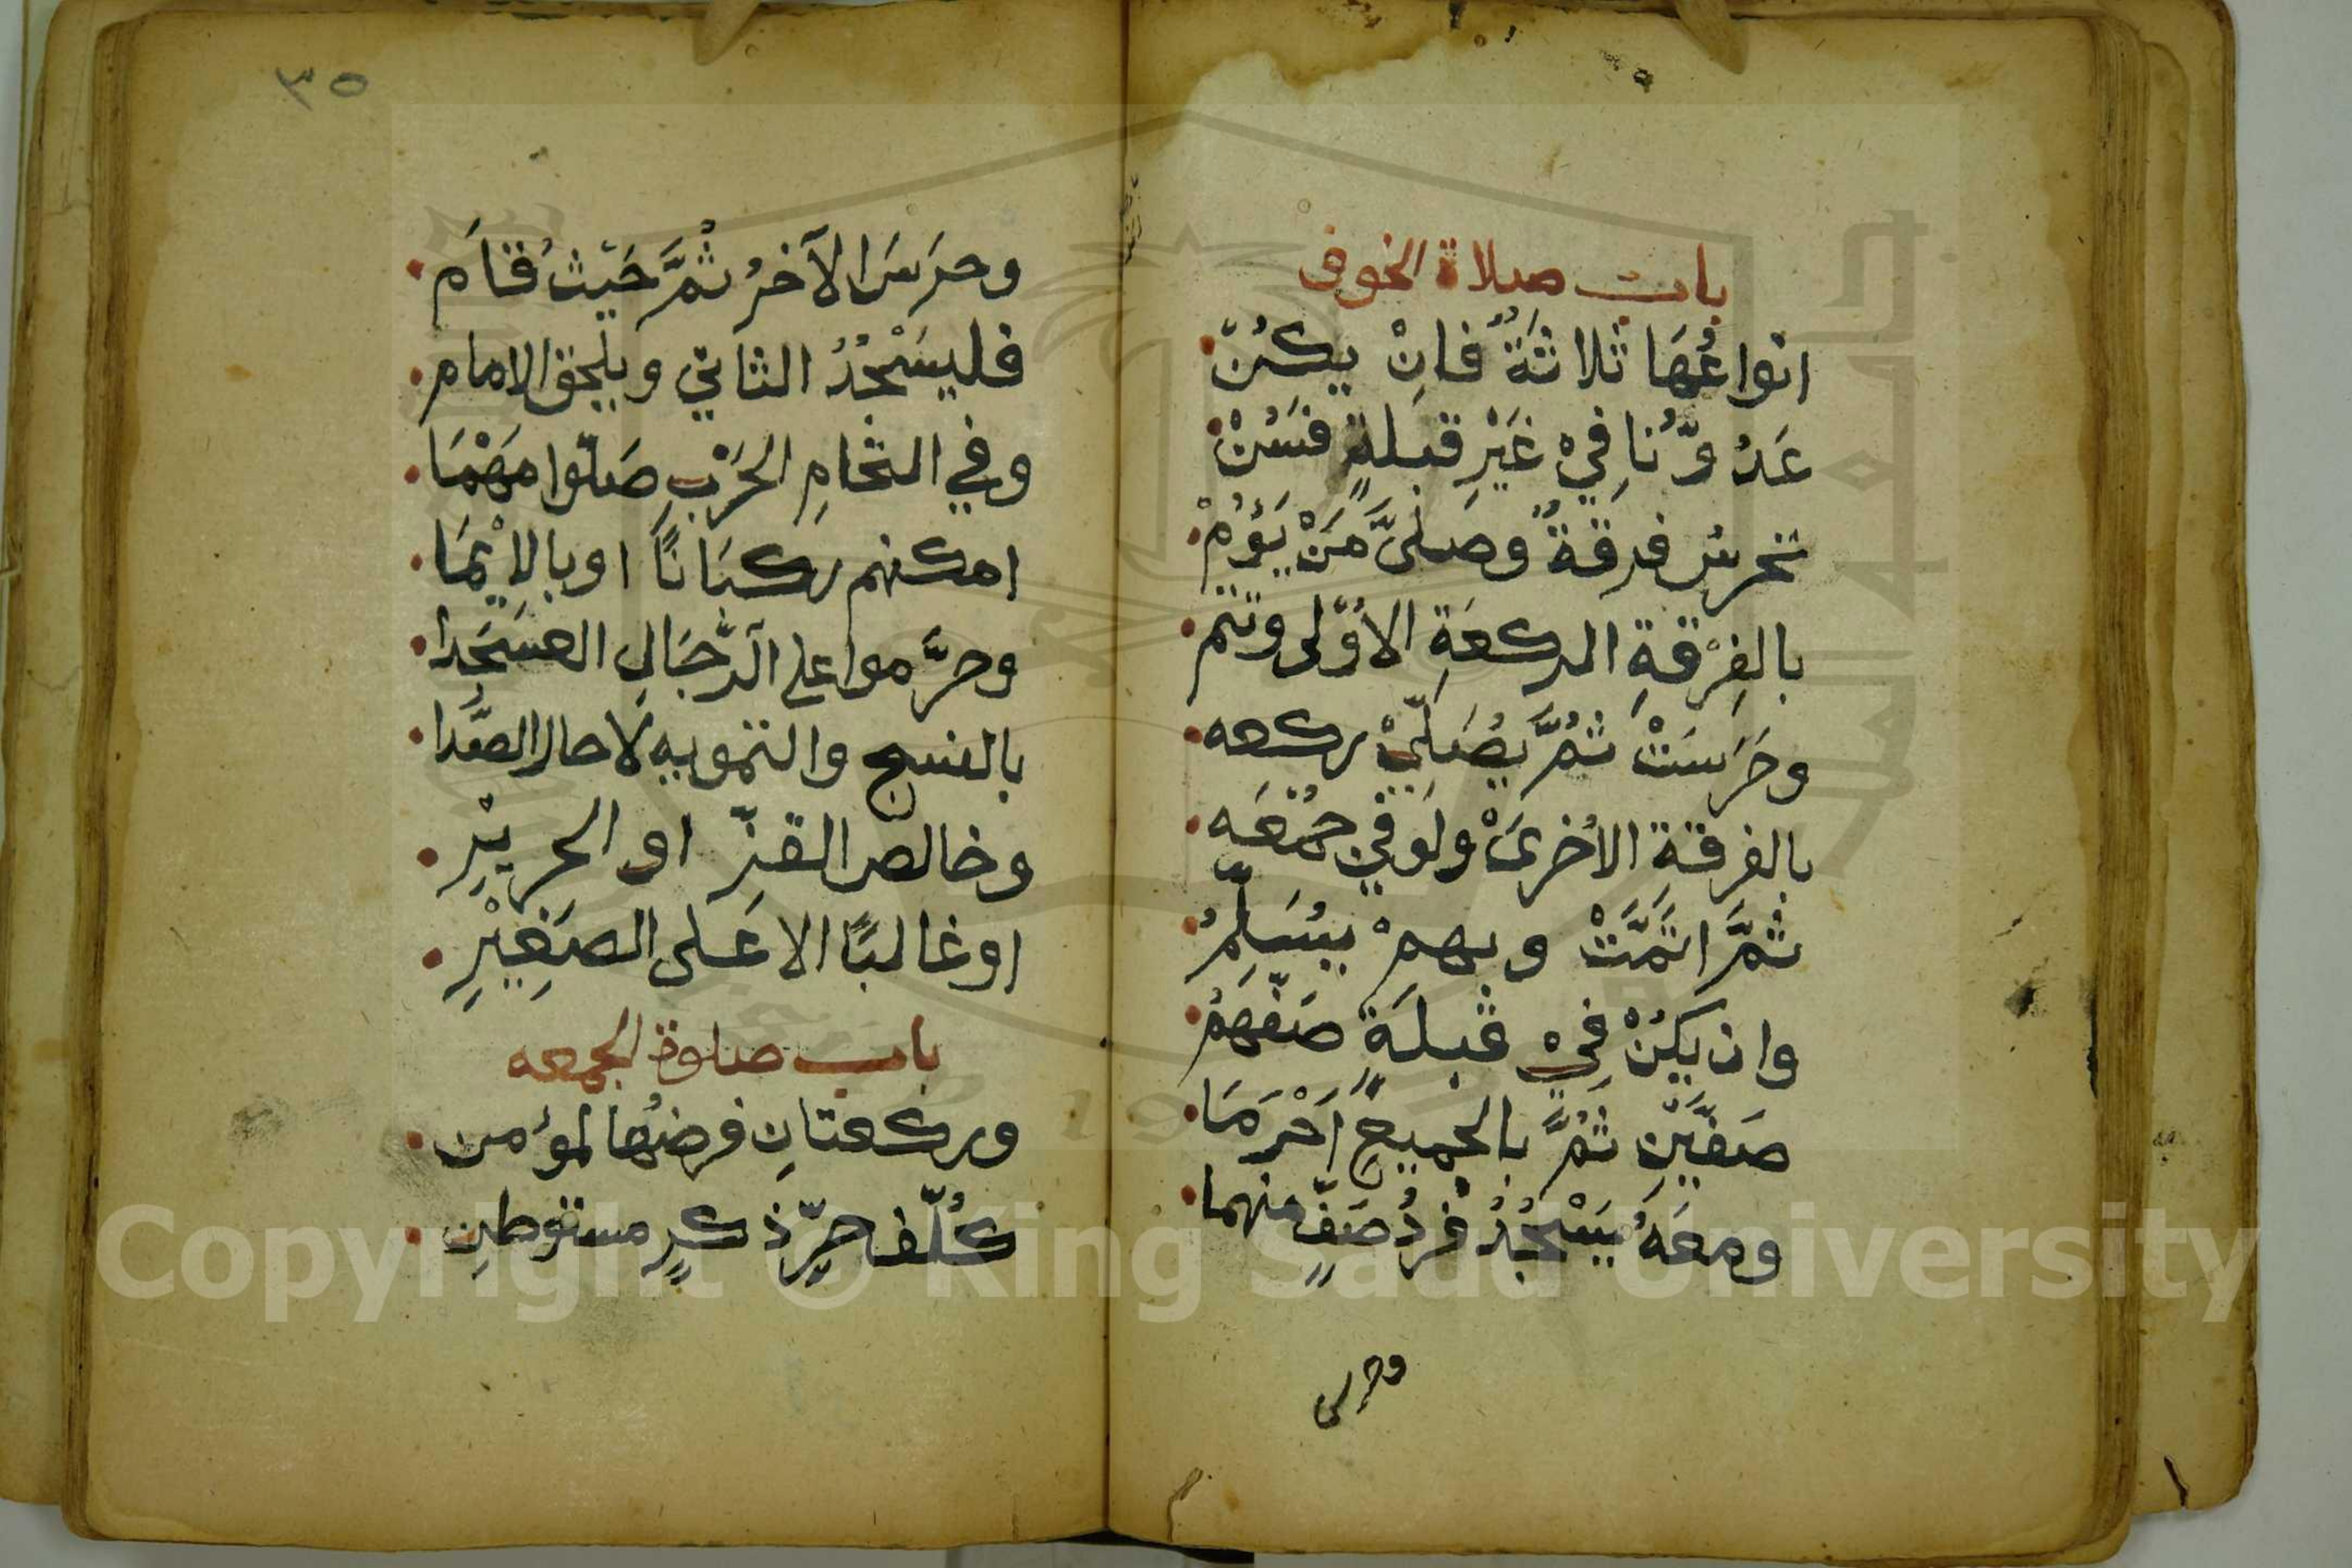 باب صلاة الخوف
انواعُهَا ثلاثَةٌ فانِْ يكُنْ
عَدُوُّنَا فِيْ غَيْرِ قبلةٍ فسُنْ
تحرسُ فرقةٌ وصلىَّ مَنْ يَؤُمْ
بالفِرْقةِ الركعَةِ الأُوْلى وتتم
وحَرَسَتْ ثمَُّ يُصَلِّيْ ركعه
بالفرقة الأخرىَْ ولَوْ في جُمُعَه
ثمَّ اتَمَّتْ وبهمْ يُسَلِّمُ
وان يكُنْ فِيْ قبلَةٍ صَفَّهُمُ
صَفَّيَنِ ثمَُّ بالجميعِ اَحْرَمَا
ومعَهُ يَسْجُدُ فردُ صَفٍّ منهما
وحرس
٣٥
وحرَسَ الآخرُ ثُمَّ حَيْثُ قامَ
فليسَْجُدُ الثاني ويلحق الامام
وفي التحامِ الحَرْبِ صَلّوا مَهْمَا
امكنهم ركبَانًا او بالإيْمَا
وحرَّموا على الرِّجَالِ العسَجَدا
بالنسج والتمويه لَا حال الصَّدا
وخالص القزِّ او الحريْرِ
او غالبًا الا عَلى الصَغِيْرِ
باب صلوة الجمعه
وركعتانِ فرضُها لمؤمن
كُلّف حرٍّ ذكرٍ مستوطِن
Copyright © King Saud University